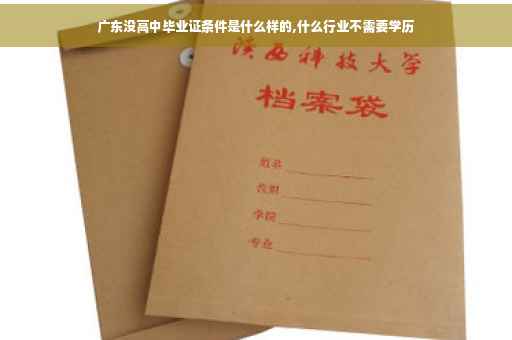 广东没高中毕业证条件是什么样的,什么行业不需要学历
陕西科技大学
档案袋
姓名
教职
学院
专业